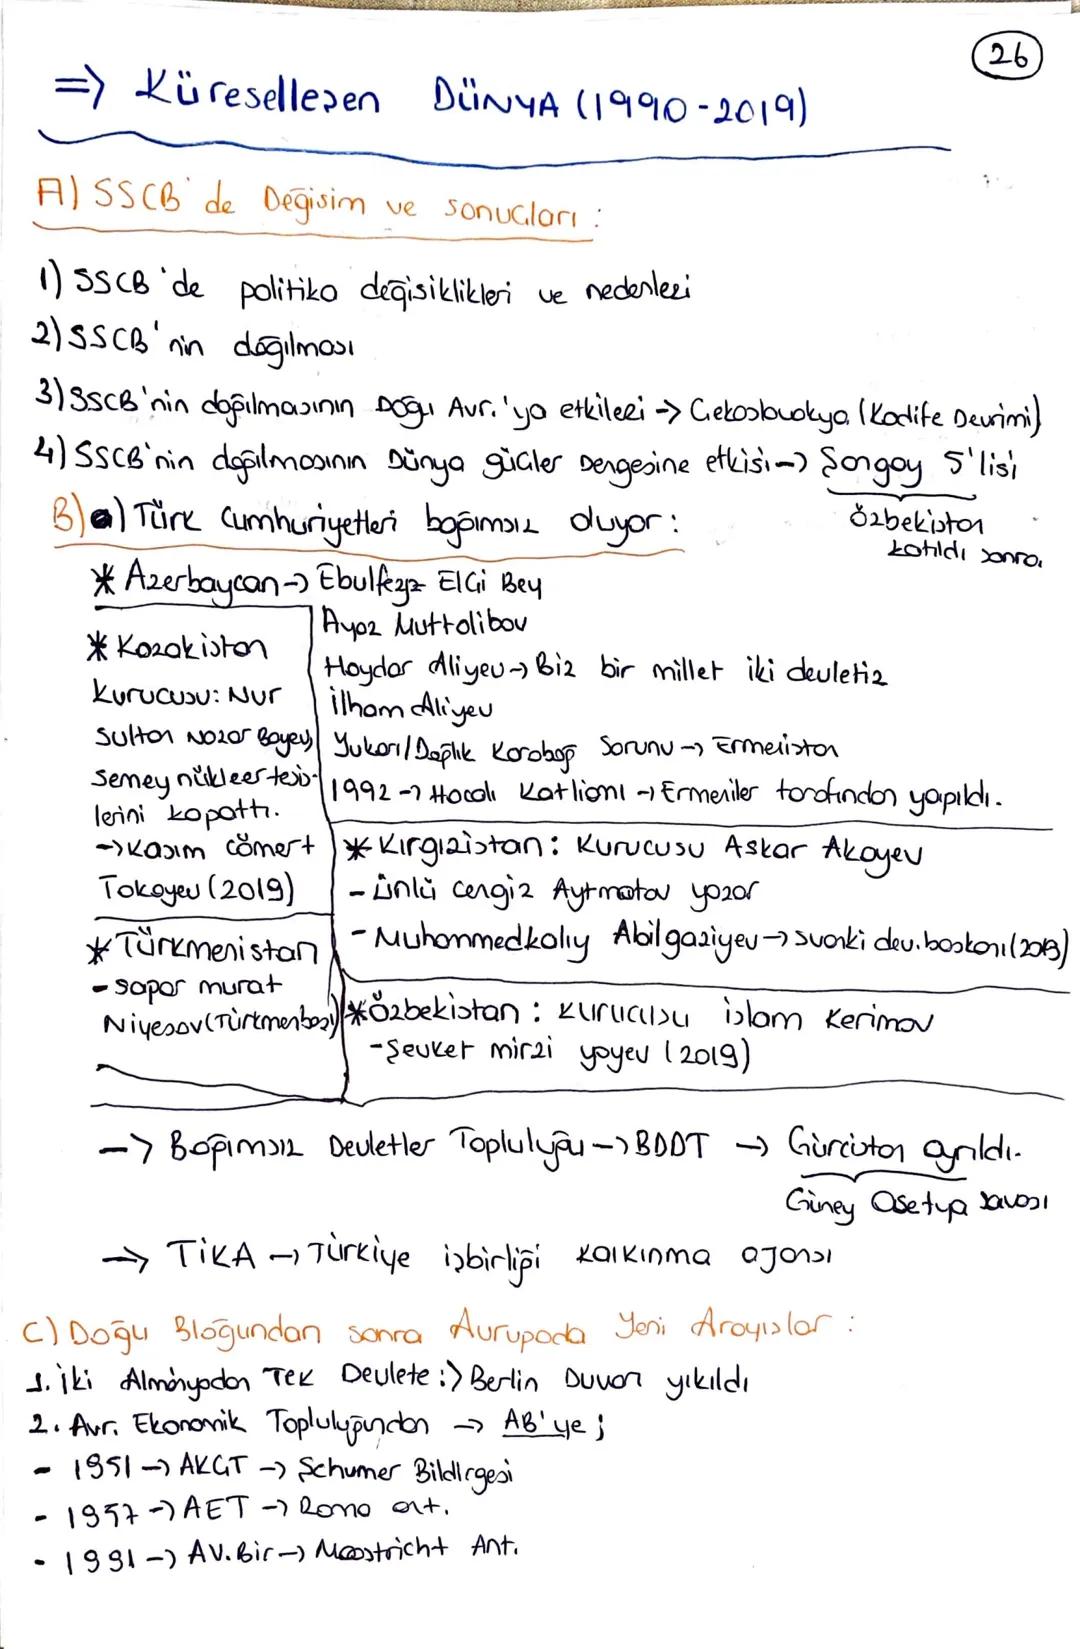 26
=> Küreselleşen DÜNYA (1990-2019)
A) SSCB'de Değişim ve sonuçları :
1) SSCB'de politika değişiklikleri ve nedenleri
2) SSCB'nin dağılması
3) SSCB'nin dağılmasının Doğu Avr.'ya etkileri -> Çekoslovakya (Kadife Devrimi)
4) SSCB'nin dağılmasının Dünya güçler Dengesine etkisi -> Şangay 5'lisi
Özbekistan
katıldı sonra.
B) a) Türk Cumhuriyetleri bağımsız oluyor :
* Azerbaycan -> Ebulfeyz Elçi Bey
Ayaz Muttalibov
Haydar Aliyev -> Biz bir millet iki devletiz
İlham Aliyev
Yukarı/Dağlık Karabağ Sorunu -> Ermenistan
1992 -> Hocalı Katliamı -> Ermeniler tarafından yapıldı.
* Kazakistan
Kurucusu: Nur
Sultan Nazar Bayev
Semey nükleer tesis-
lerini kapattı.
-> Kasım cömert
Tokayev (2019)
* Kırgızistan : Kurucusu Askar Akayev
- ünlü cengiz Aytmatov yazar
- Muhammedkalıy Abilgaziyev -> şuanki dev. başkanı (2018)
* Türkmenistan
- sapar murat
Niyesov (Türkmenbaşı)
* Özbekistan : Kurucusu islam Kerimov
- Şevket mirzi yoyev (2019)
-> Bağımsız Devletler Topluluğu -> BDDT -> Gürcistan ayrıldı.
Güney Osetya savaşı
-> TİKA -> Türkiye işbirliği kalkınma ajansı
C) Doğu Bloğundan sonra Avrupada Yeni Arayışlar :
1. İki Almanyadan Tek Devlete :> Berlin Duvarı yıkıldı
2. Avr. Ekonomik Topluluğundan -> AB'ye ;
- 1951 -> AKÇT -> Schumer Bildirgesi
- 1957 -> AET -> Roma ant.
- 1991 -> AV. Bir -> Maastricht Ant.